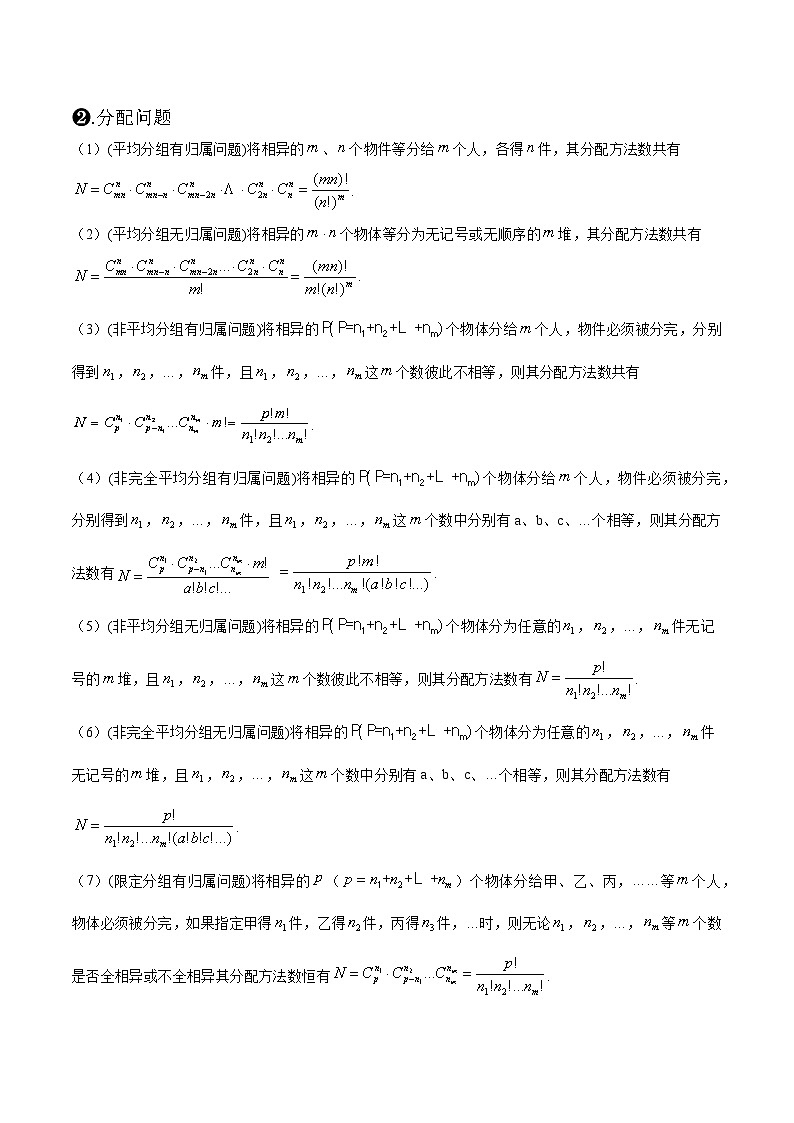 ❷.分配问题
（1）(平均分组有归属问题)将相异的 m 、n 个物件等分给 m 个人，各得 n 件，其分配方法数共有
N = C_{mn}^{n} · C_{mn-n}^{n} · C_{mn-2n}^{n} · Λ · C_{2n}^{n} · C_{n}^{n} = \frac{(mn)!}{(n!)^{m}} .
（2）(平均分组无归属问题)将相异的 m · n 个物体等分为无记号或无顺序的 m 堆，其分配方法数共有
N = \frac{C_{mn}^{n} · C_{mn-n}^{n} · C_{mn-2n}^{n} ... C_{2n}^{n} · C_{n}^{n}}{m!} = \frac{(mn)!}{m!(n!)^{m}} .
（3）(非平均分组有归属问题)将相异的 P( P=n_1+n_2+L +n_m) 个物体分给 m 个人，物件必须被分完，分别
得到 n_1 ，n_2 ，…，n_m 件，且 n_1 ，n_2 ，…，n_m 这 m 个数彼此不相等，则其分配方法数共有
N = C_{p}^{n_1} · C_{p-n_1}^{n_2} ... C_{n_m}^{n_m} · m! = \frac{p!m!}{n_1!n_2!...n_m!} .
（4）(非完全平均分组有归属问题)将相异的 P( P=n_1+n_2+L +n_m) 个物体分给 m 个人，物件必须被分完，
分别得到 n_1 ，n_2 ，…，n_m 件，且 n_1 ，n_2 ，…，n_m 这 m 个数中分别有 a、b、c、…个相等，则其分配方
法数有 N = \frac{C_{p}^{n_1} · C_{p-n_1}^{n_2} ... C_{n_m}^{n_m} · m!}{a!b!c!...} = \frac{p!m!}{n_1!n_2!...n_m!(a!b!c!...)} .
（5）(非平均分组无归属问题)将相异的 P( P=n_1+n_2+L +n_m) 个物体分为任意的 n_1 ，n_2 ，…，n_m 件无记
号的 m 堆，且 n_1 ，n_2 ，…，n_m 这 m 个数彼此不相等，则其分配方法数有 N = \frac{p!}{n_1!n_2!...n_m!} .
（6）(非完全平均分组无归属问题)将相异的 P( P=n_1+n_2+L +n_m) 个物体分为任意的 n_1 ，n_2 ，…，n_m 件
无记号的 m 堆，且 n_1 ，n_2 ，…，n_m 这 m 个数中分别有 a、b、c、…个相等，则其分配方法数有
N = \frac{p!}{n_1!n_2!...n_m!(a!b!c!...)} .
（7）(限定分组有归属问题)将相异的 p （ p = n_1+n_2+L +n_m ）个物体分给甲、乙、丙，……等 m 个人，
物体必须被分完，如果指定甲得 n_1 件，乙得 n_2 件，丙得 n_3 件，…时，则无论 n_1 ，n_2 ，…，n_m 等 m 个数
是否全相异或不全相异其分配方法数恒有 N = C_{p}^{n_1} · C_{p-n_1}^{n_2} ... C_{n_m}^{n_m} = \frac{p!}{n_1!n_2!...n_m!} .